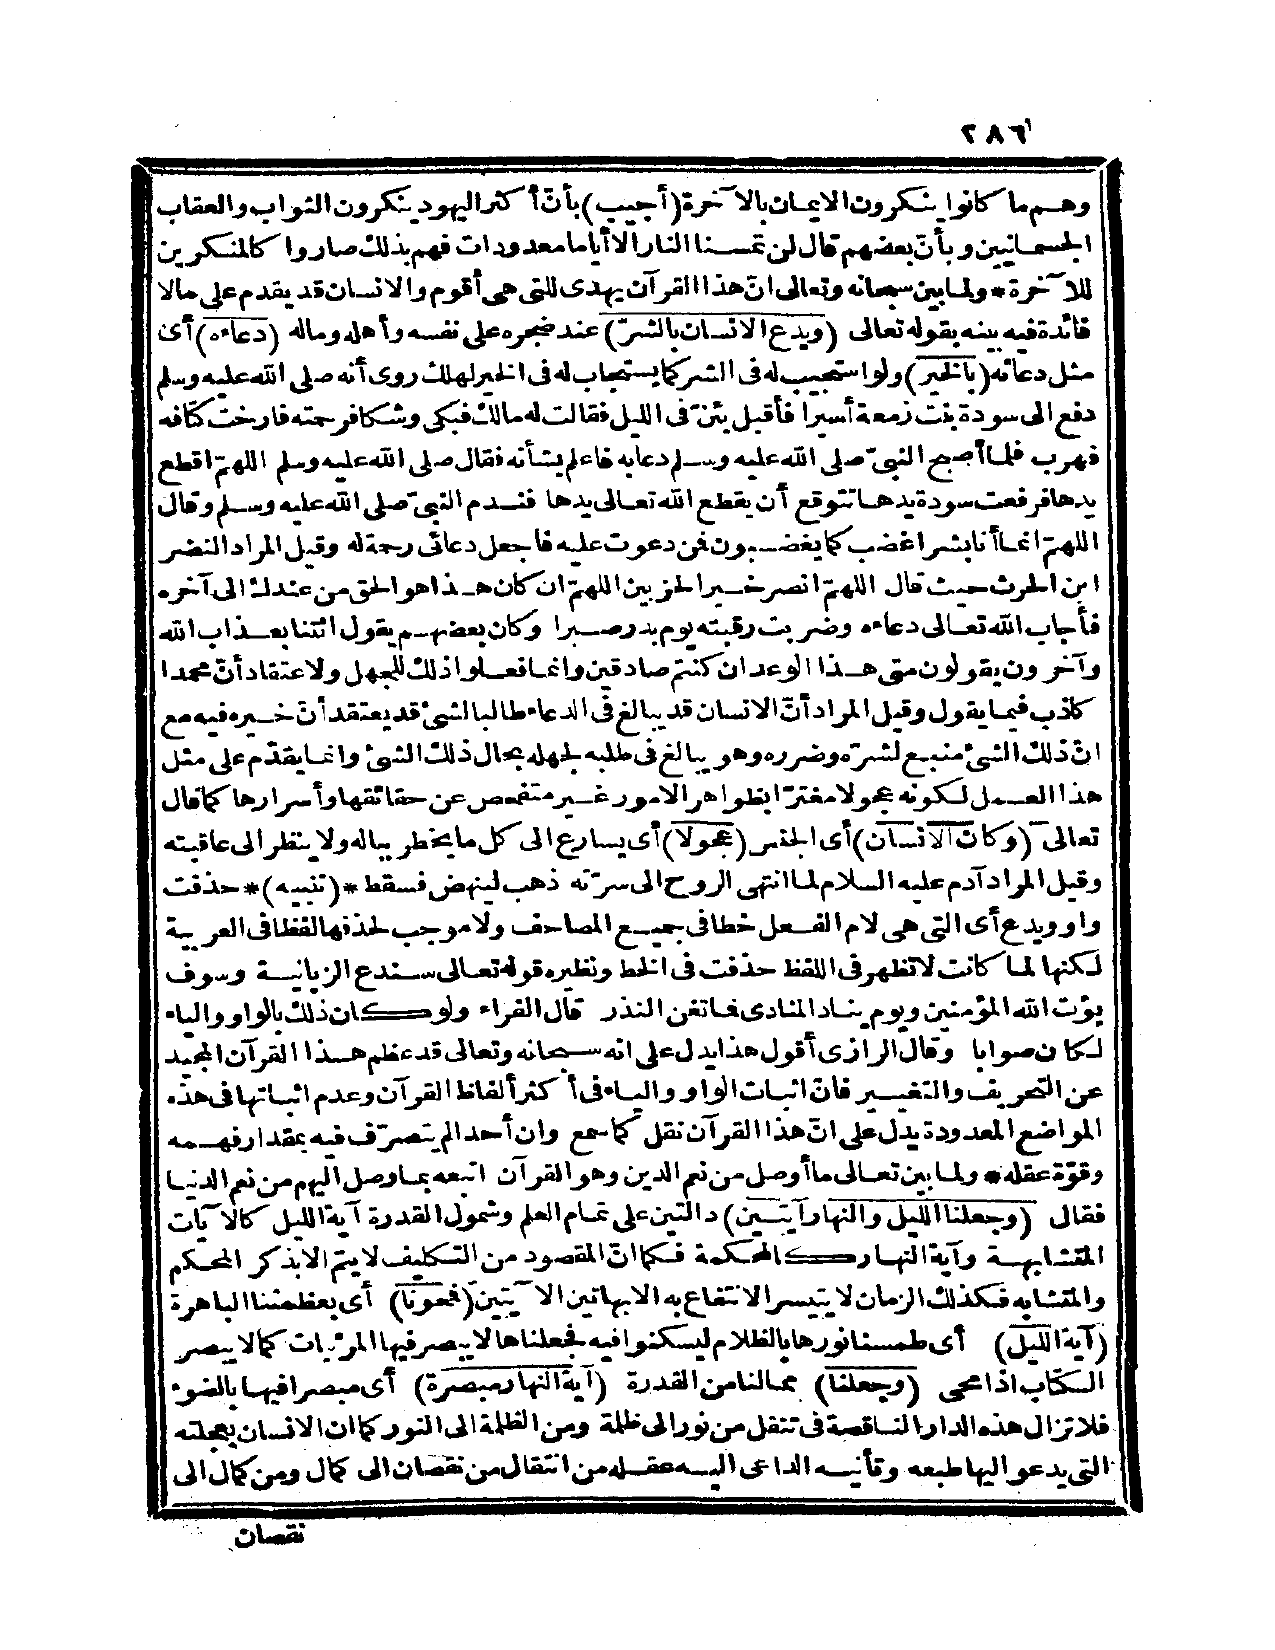 ٢٨٦
وهم ما كانوا ينكرون الايمان بالآخرة (أجيب) بأنّ أكثر اليهود ينكرون الثواب والعقاب
الجسمانيين وبأنّ بعضهم قال لن تمسنا النار الا أياما معدودات فهم بذلك صاروا كالمنكرين
للآخرة * ولما بين سبحانه وتعالى انّ هذا القرآن يهدى للتى هى أقوم والانسان قد يقدم على مالا
فائدة فيه بينه بقوله تعالى (ويدع الانسان بالشرّ) عند ضجره على نفسه وأهله وماله (دعاءه) أى
مثل دعائه (بالخير) ولو استجيب له فى الشر كما يستجاب له فى الخير لهلك روى أنه صلى الله عليه وسلم
دفع الى سودة بنت زمعة أسيرا فأقبل يئنّ فى الليل فقالت له مالك فبكى وشكا فرحمته فارخت كتافه
فهرب فلما أصبح النبىّ صلى الله عليه وسلم دعا به فاعلم بشأنه فقال صلى الله عليه وسلم اللهمّ اقطع
يدها فرفعت سودة يدها تتوقع أن يقطع الله تعالى يدها فندم النبىّ صلى الله عليه وسلم وقال
اللهمّ انما أنا بشر اغضب كما يغضبون فمن دعوت عليه فاجعل دعائى رحمة له وقيل المراد النضر
ابن الحرث حيث قال اللهمّ انصر خير الحزبين اللهمّ ان كان هذا هو الحق من عندك الى آخره
فأجاب الله تعالى دعاءه وضربت رقبته يوم بدر صبرا وكان بعضهم يقول ائتنا بعذاب الله
وآخرون يقولون متى هذا الوعد ان كنتم صادقين وانما فعلوا ذلك للجهل ولاعتقاد أنّ محمدا
كاذب فيما يقول وقيل المراد أنّ الانسان قد يبالغ فى الدعاء طالبا لشئ قد يعتقد أنّ خيره فيه مع
انّ ذلك الشئ منبع لشرّه وضرره وهو يبالغ فى طلبه لجهله بحال ذلك الشئ وانما يقدّم على مثل
هذا العمل لكونه عجولا مغترّا بظواهر الامور غير متفحص عن حقائقها وأسرارها كما قال
تعالى (وكان الانسان) أى الجنس (عجولا) أى يسارع الى كل ما يخطر بباله ولا ينظر الى عاقبته
وقيل المراد آدم عليه السلام لما انتهى الروح الى سرّته ذهب لينهض فسقط * (تنبيه) * حذفت
واو ويدع أى التى هى لام الفعل خطا فى جميع المصاحف ولا موجب لحذفها لفظا فى العربية
لكنها لما كانت لا تظهر فى اللفظ حذفت فى الخط ونظيره قوله تعالى سندع الزبانية وسوف
يؤت الله المؤمنين ويوم يناد المنادى فما تغن النذر قال الفراء ولو كان ذلك بالواو والياء
لكان صوابا وقال الرازى أقول هذا يدل على انه سبحانه وتعالى قد عظم هذا القرآن المجيد
عن التحريف والتغيير فانّ اثبات الواو والياء فى أكثر ألفاظ القرآن وعدم اثباتها فى هذه
المواضع المعدودة يدل على انّ هذا القرآن نقل كما سمع وان أحدا لم يتصرّف فيه بمقدار فهمه
وقوّة عقله * ولما بين تعالى ما أوصل من نعم الدين وهو القرآن اتبعه بما وصل اليهم من نعم الدنيا
فقال (وجعلنا الليل والنهار آيتين) دالتين على تمام العلم وشمول القدرة آية الليل كالآيات
المتشابهة وآية النهار كالمحكمة فكما انّ المقصود من التكليف لا يتمّ الا بذكر المحكم
والمتشابه فكذلك الزمان لا يتيسر الانتفاع به الا بهاتين الآيتين (فمحونا) أى بعظمتنا الباهرة
(آية الليل) أى طمسنا نورها بالظلام ليسكنوا فيه فجعلناها لا يبصر فيها المرئيات كما لا يبصر
الكتاب اذا محى (وجعلنا) بمالنا من القدرة (آية النهار مبصرة) أى مبصرا فيها بالضوء
فلا تزال هذه الدار الناقصة فى تنقل من نور الى ظلمة ومن الظلمة الى النور كما ان الانسان بعجلته
التى يدعو اليها طبعه وتأنيه الداعى اليه عقله من انتقال من نقصان الى كمال ومن كمال الى
نقصان